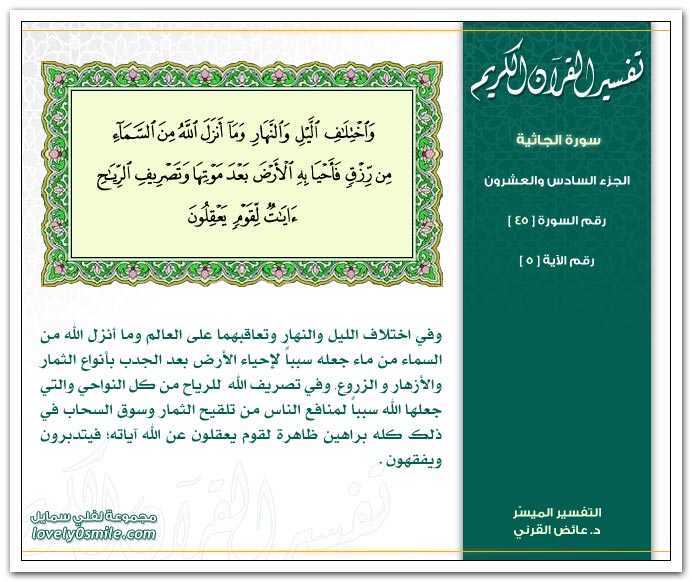 تفسير القرآن الكريم
سورة الجاثية
الجزء السادس والعشرون
رقم السورة [ ٤٥ ]
رقم الآية [ ٥ ]
وَٱخْتِلَٰفِ ٱلَّيْلِ وَٱلنَّهَارِ وَمَآ أَنزَلَ ٱللَّهُ مِنَ ٱلسَّمَآءِ
مِن رِّزْقٍ فَأَحْيَا بِهِ ٱلْأَرْضَ بَعْدَ مَوْتِهَا وَتَصْرِيفِ ٱلرِّيَٰحِ
ءَايَٰتٌ لِّقَوْمٍ يَعْقِلُونَ
وفي اختلاف الليل والنهار وتعاقبهما على العالم وما أنزل الله من
السماء من ماء جعله سبباً لإحياء الأرض بعد الجدب بأنواع الثمار
والأزهار و الزروع. وفي تصريف الله للرياح من كل النواحي والتي
جعلها الله سبباً لمنافع الناس من تلقيح الثمار وسوق السحاب في
ذلك كله براهين ظاهرة لقوم يعقلون عن الله آياته؛ فيتدبرون
ويفقهون .
تفسير القرآن الكريم
التفسير الميسّر
د. عائض القرني
مجموعة لفلي سمايل
lovely0smile.com